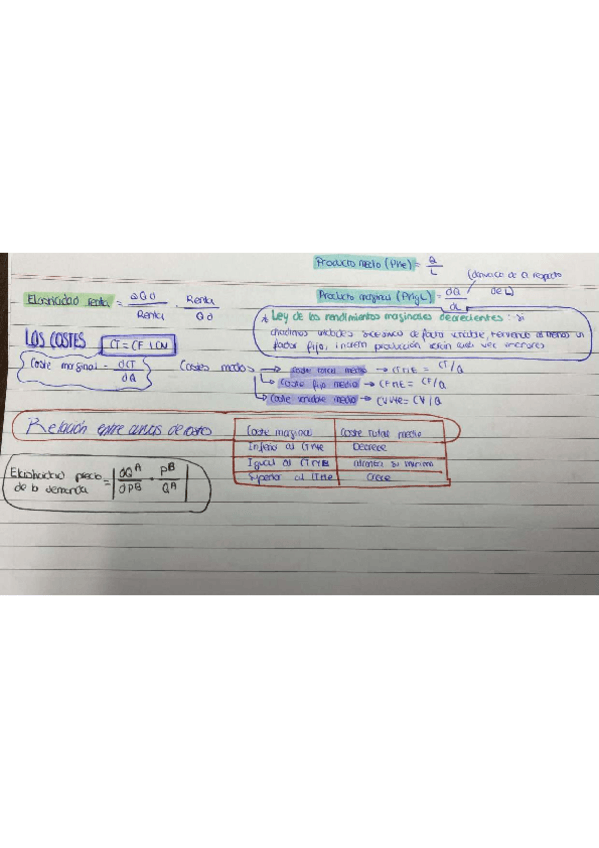 Producto medio (PMe) = Q / L
Producto marginal (PMgL) = ∂Q / ∂L (derivada de Q respecto de L)
Elasticidad renta = ∂QD / Renta · Renta / QD
* Ley de los rendimientos marginales decrecientes: si
añadimos unidades de factor variable, teniendo al menos un
factor fijo, increm producción serán cada vez menores
LOS COSTES CT = CF + CV
Coste marginal = ∂CT / ∂Q
Costes medios → Coste total medio → CTMe = CT/Q
→ Coste fijo medio → CFME = CF/Q
→ Coste variable medio → CVMe = CV/Q
Relación entre curvas de costes
Coste marginal Coste total medio
Inferior al CTMe Decrece
Igual al CTMe alcanza su mínimo
Superior al CTMe Crece
Elasticidad precio de la demanda = | ∂Qᴬ / ∂Pᴮ · Pᴮ / Qᴬ |